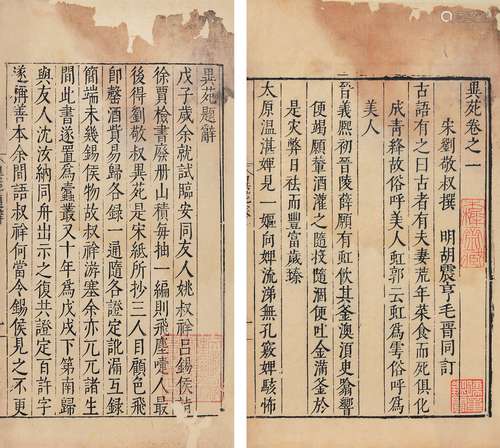 異苑卷之一
宋劉敬叔撰 明胡震亨毛晉同訂
古語有之曰古者有夫妻荒年菜食而死俱化
成青絳故俗呼美人虹郭云虹為雩俗呼為
美人
晉義熙初晉陵薛願有虹飲其釜澳湏臾翕響
便竭願輦酒灌之隨投隨涸便吐金滿釜於
是灾弊日祛而豐富歲臻
太原溫湛婢見一嫗向婢流涕無孔竅婢駭怖
異苑題辭
戊子歲余就試臨安同友人姚叔祥呂錫侯詣
徐賈檢書廢册山積每抽一編則飛塵嚔人最
後得劉敬叔異苑是宋紙所抄三人目顧色飛
卽罄酒貲易歸各錄一通隨各證定訛漏互錄
簡端未幾錫侯物故叔祥游塞余亦兀兀諸生
間此書遂置為蠹叢又十年為戊戌下第南歸
與友人沈汝納同舟出示之復共證定百許字
遂稱善本余間語叔祥何當令錫侯見之不更